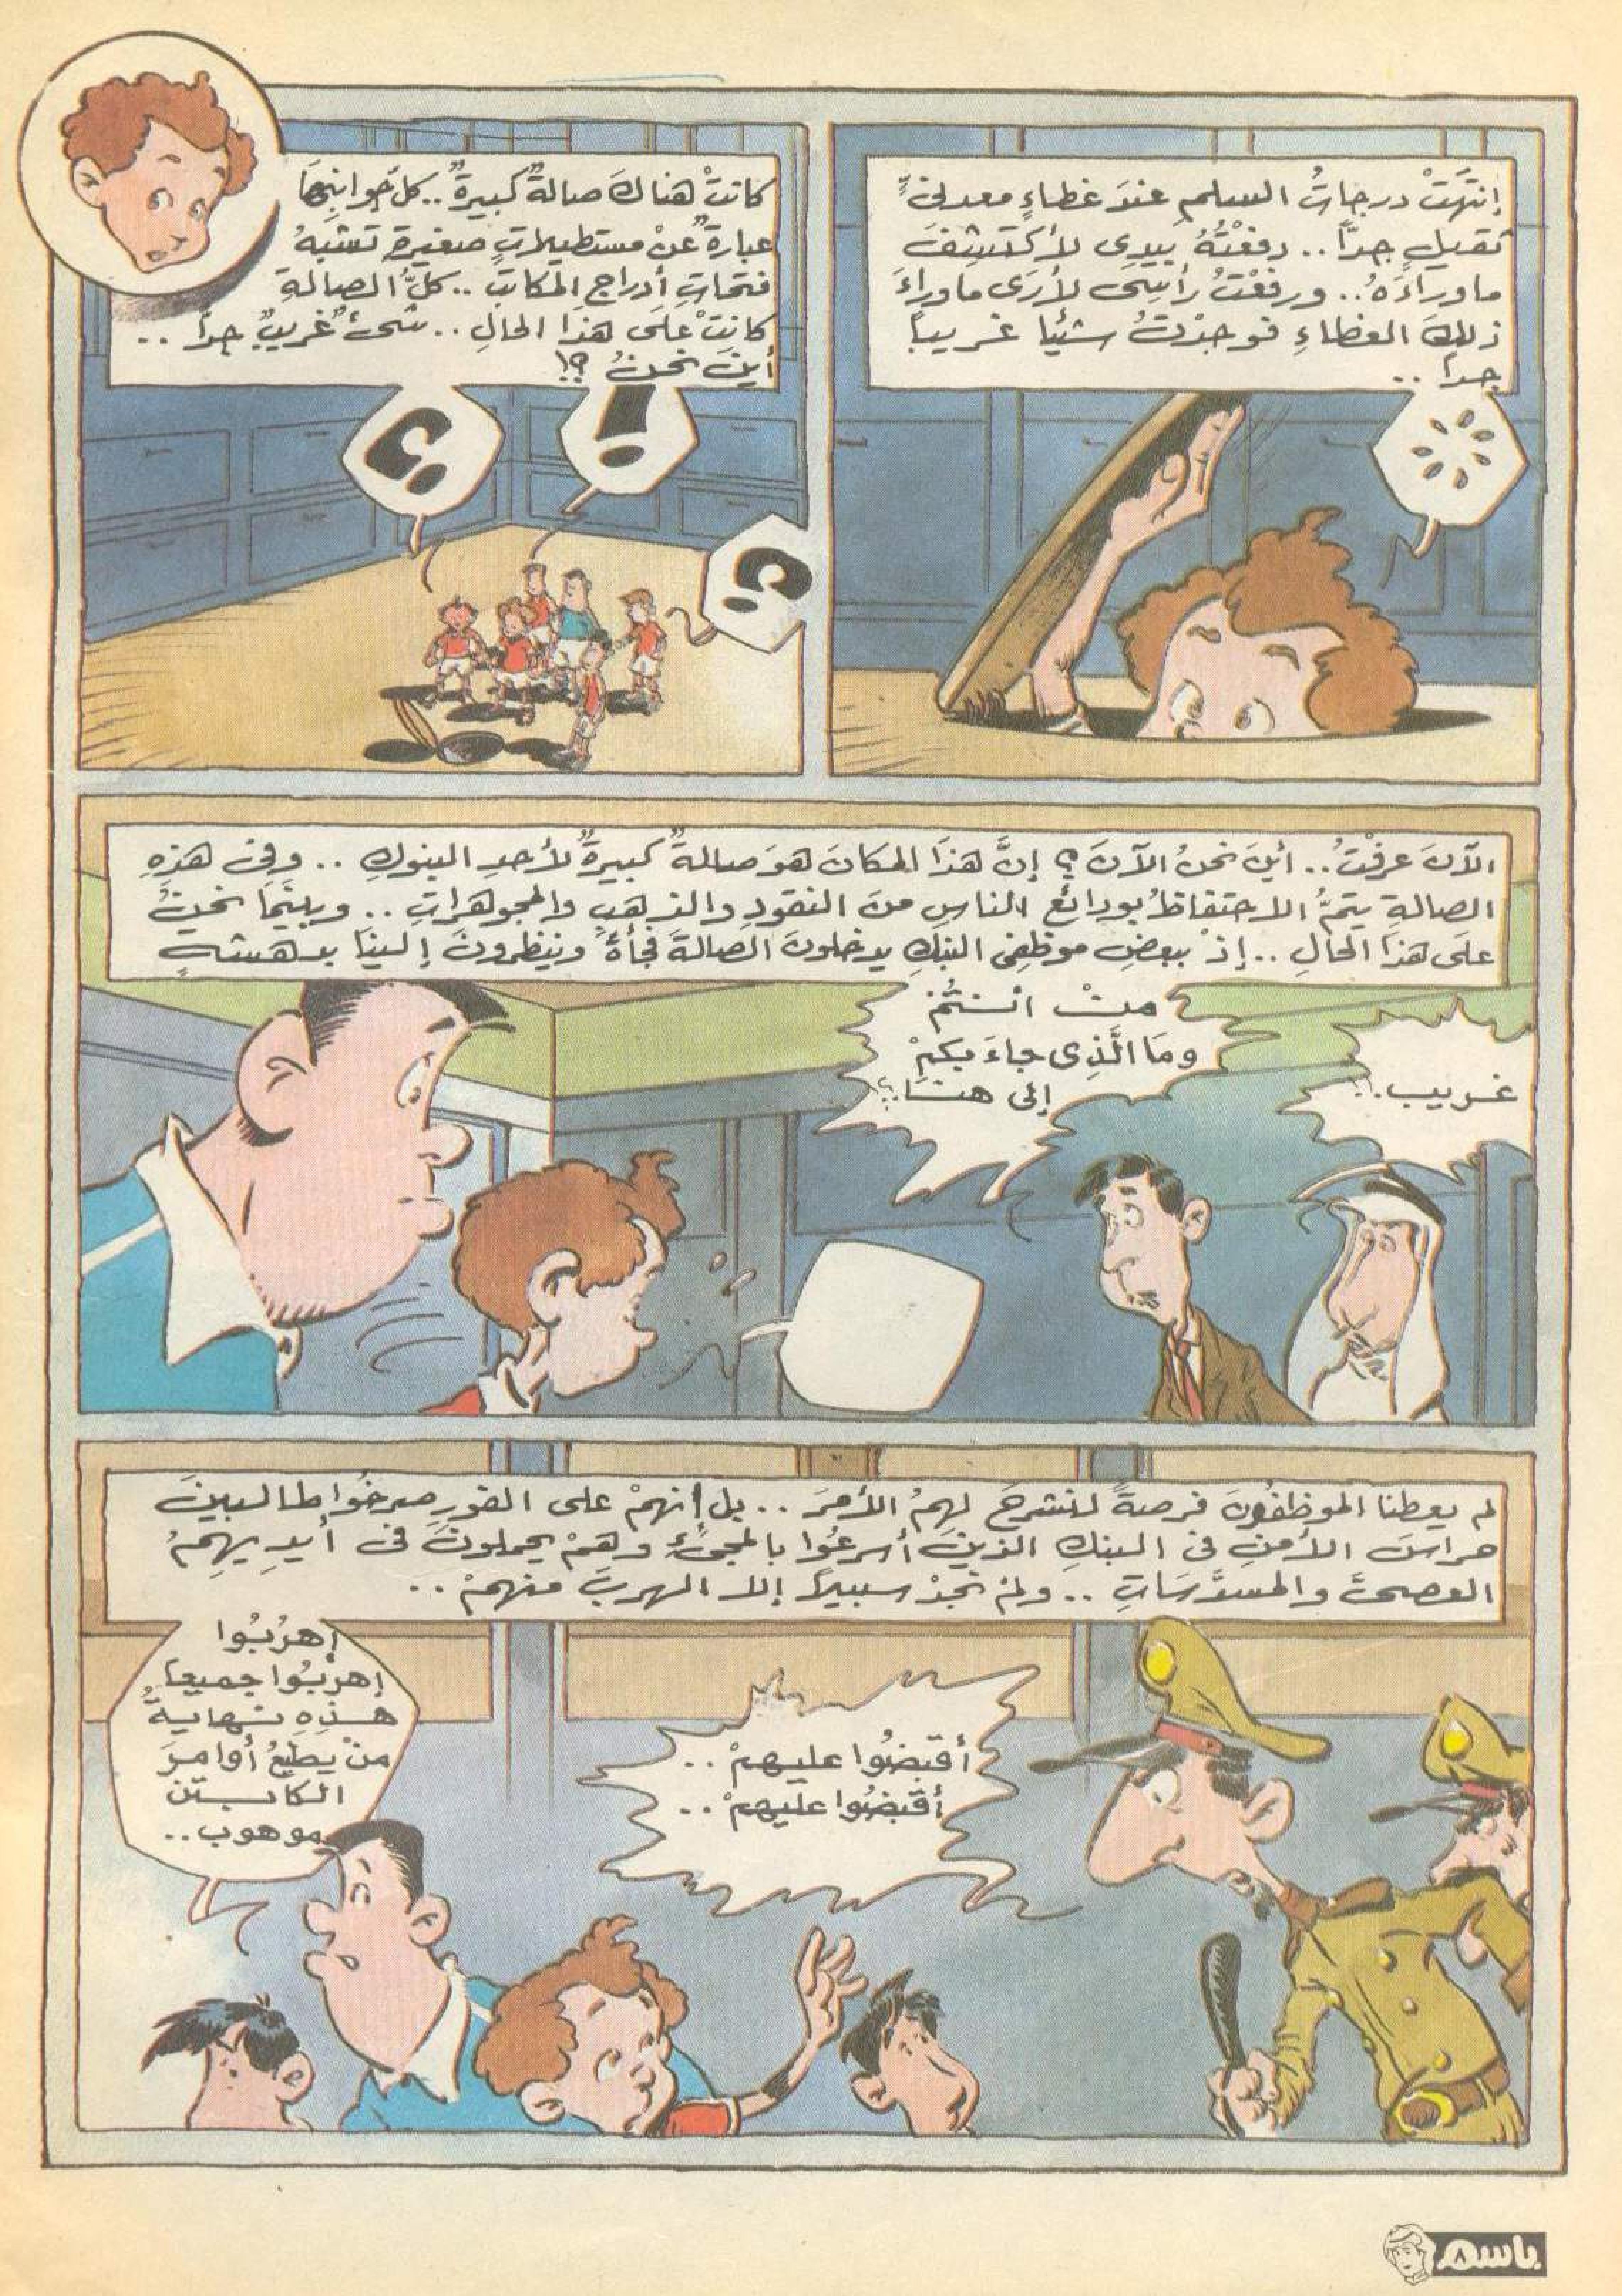 إنتَهَتْ درجاتُ السلمِ عندَ غطاءٍ معدنيٍّ
ثقيلٍ جداً .. دفعْتُهُ بيدِى لأكتشِفَ
ماوراءَهُ .. ورفعْتُ رأسِى لأرَى ماوراءَ
ذلِكَ الغطاءِ فوجدْتُ شيئاً غريباً
جداً ..
كانتْ هناكَ صالةٌ كبيرةٌ .. كلُّ جوانبِهَا
عبارةٌ عنْ مستطيلاتٍ صغيرةٍ تشبهُ
فتحاتِ أدراجِ المكاتبِ .. كلُّ الصالةِ
كانتْ علَى هذَا الحالِ .. شىءٌ غريبٌ جداً ..
أينَ نحنُ ؟!
!
؟
؟
الآنَ عرفْتُ .. أينَ نحنُ الآنَ ؟ إنَّ هذَا المكانَ هوَ صالةٌ كبيرةٌ لأحدِ البنوكِ .. وفى هذِهِ
الصالةِ يتمُّ الاحتفاظُ بودائعِ الناسِ منَ النقودِ والذهبِ والمجوهراتِ .. وبينَمَا نحنُ
علَى هذَا الحالِ .. إذْ ببعضِ موظفِى البنكِ يدخلونَ الصالةَ فجأةً وينظرونَ إلينَا بدهشةٍ
غريب .!!
منْ أنتُمْ
ومَا الَّذِى جاءَ بكمْ
إلى هنَا .؟!
لم يعطنا الموظفُونَ فرصةً لنشرحَ لهمُ الأمرَ .. بل أنهمْ على الفورِ صرخُوا طالبينَ
حراسَ الأمنِ فى البنكِ الذينَ أسرعُوا بالمجىءِ وهمْ يحملونَ فى أيديهِمُ
العصىَّ والمسدَّسَاتِ .. ولمْ نجدْ سبيلاً إلا الهربَ منهمْ ..
أقبضُوا عليهمْ ..
أقبضُوا عليهمْ ..
إهرُبُوا
إهربُوا جميعا
هذِهِ نهايةُ
منْ يطيعُ أوامرَ
الكابتن
موهوب ..
باسم
٨